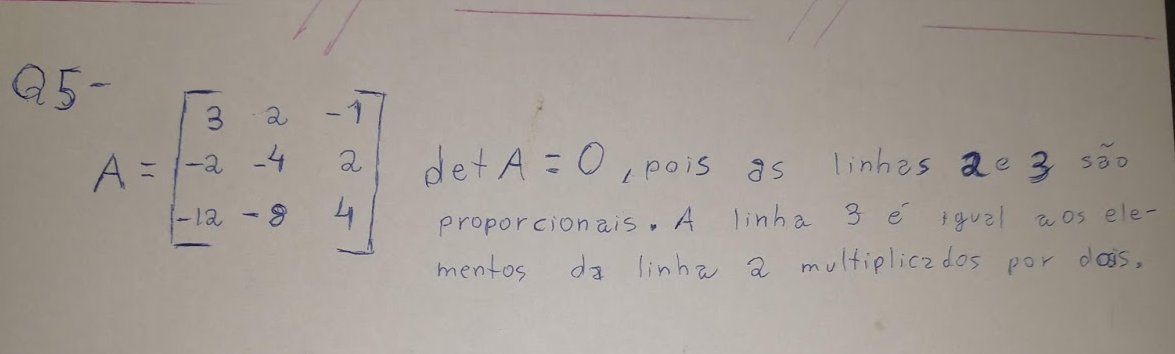 Q5-
A = [ 3 2 -1
-2 -4 2
-12 -8 4 ]
det A = 0, pois as linhas 2 e 3 são
proporcionais. A linha 3 é igual aos ele-
mentos da linha 2 multiplicados por dois.